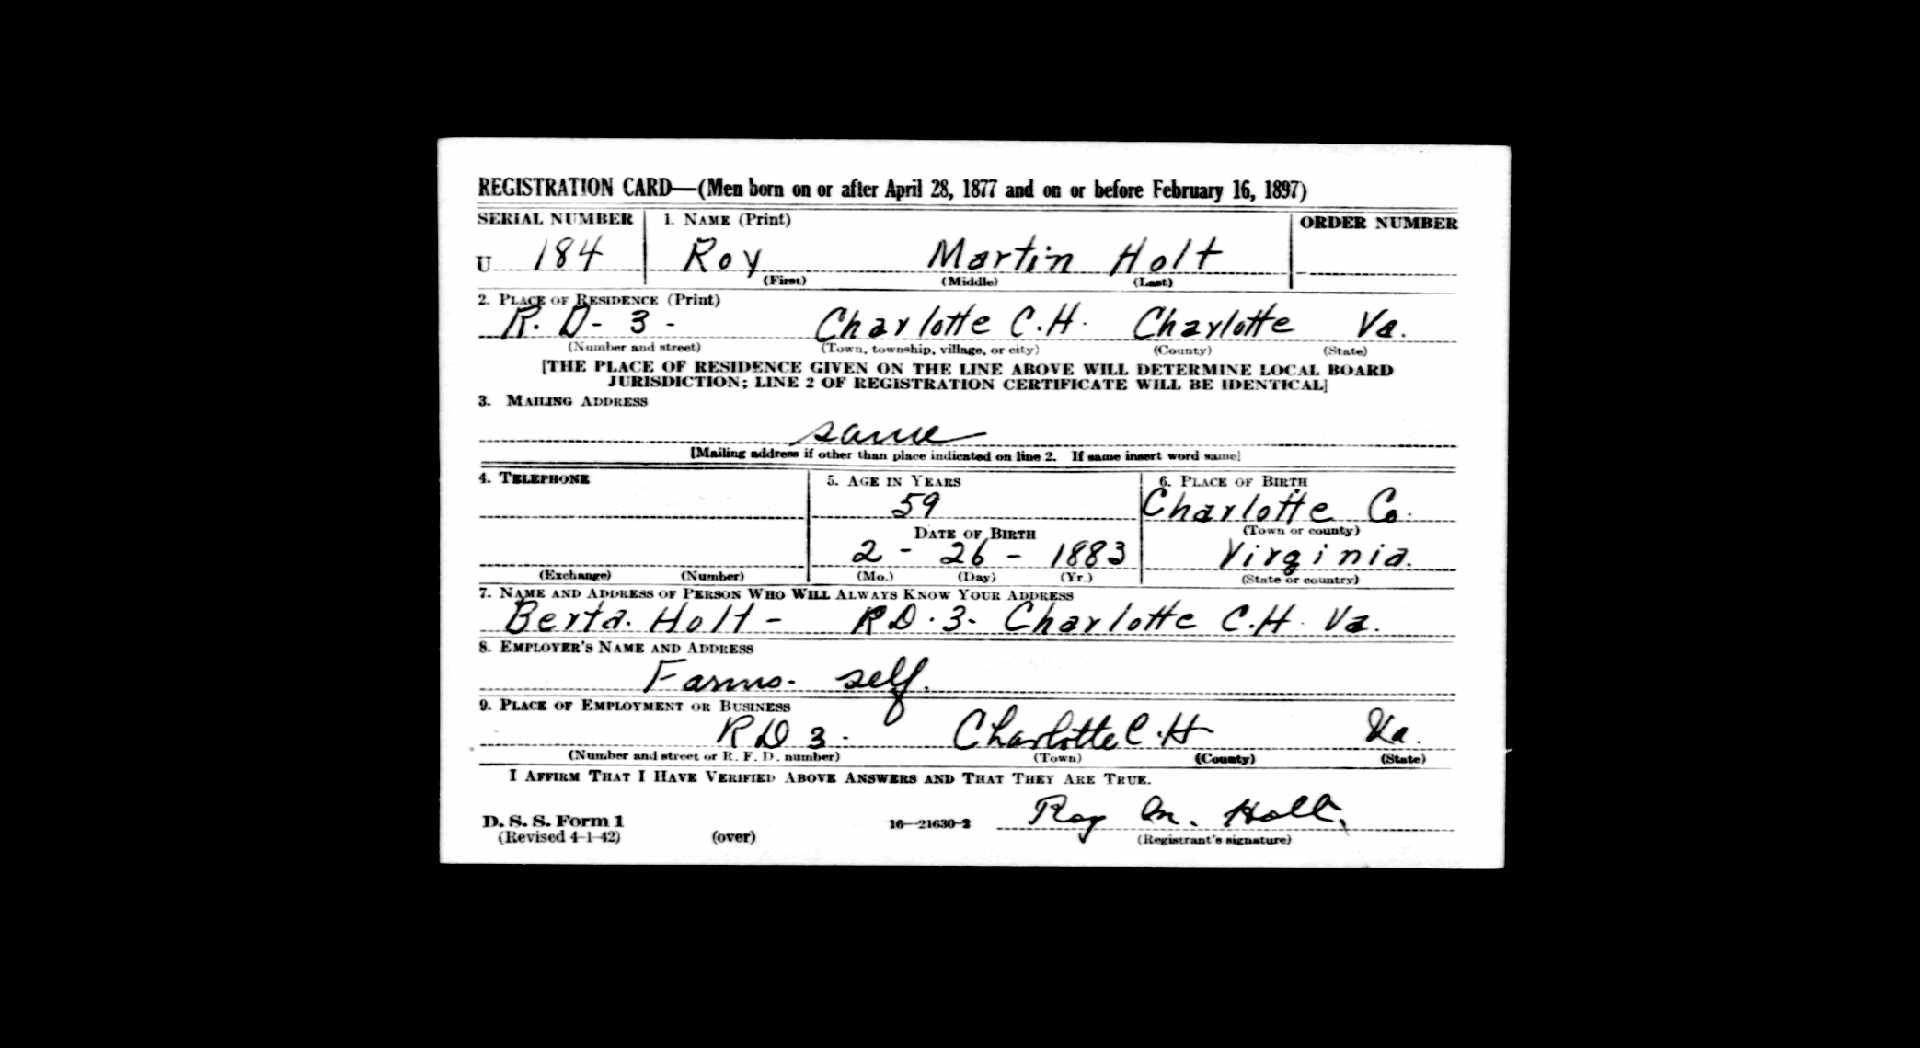 REGISTRATION CARD—(Men born on or after April 28, 1877 and on or before February 16, 1897)
SERIAL NUMBER 1. NAME (Print) ORDER NUMBER
U 184 Roy Martin Holt
(First) (Middle) (Last)
2. PLACE OF RESIDENCE (Print)
R. D- 3 - Charlotte C.H. Charlotte Va.
(Number and street) (Town, township, village, or city) (County) (State)
[THE PLACE OF RESIDENCE GIVEN ON THE LINE ABOVE WILL DETERMINE LOCAL BOARD
JURISDICTION; LINE 2 OF REGISTRATION CERTIFICATE WILL BE IDENTICAL]
3. MAILING ADDRESS
same
[Mailing address if other than place indicated on line 2. If same insert word same]
4. TELEPHONE 5. AGE IN YEARS 6. PLACE OF BIRTH
59 Charlotte Co.
DATE OF BIRTH (Town or county)
2 - 26 - 1883 Virginia.
(Exchange) (Number) (Mo.) (Day) (Yr.) (State or country)
7. NAME AND ADDRESS OF PERSON WHO WILL ALWAYS KNOW YOUR ADDRESS
Berta. Holt - R D. 3. Charlotte C.H. Va.
8. EMPLOYER'S NAME AND ADDRESS
Farms. self.
9. PLACE OF EMPLOYMENT OR BUSINESS
R D 3. Charlotte C.H Va.
(Number and street or R. F. D. number) (Town) (County) (State)
I AFFIRM THAT I HAVE VERIFIED ABOVE ANSWERS AND THAT THEY ARE TRUE.
Roy M. Holt.
D. S. S. Form 1 16—21630-2
(Revised 4-1-42) (over) (Registrant's signature)